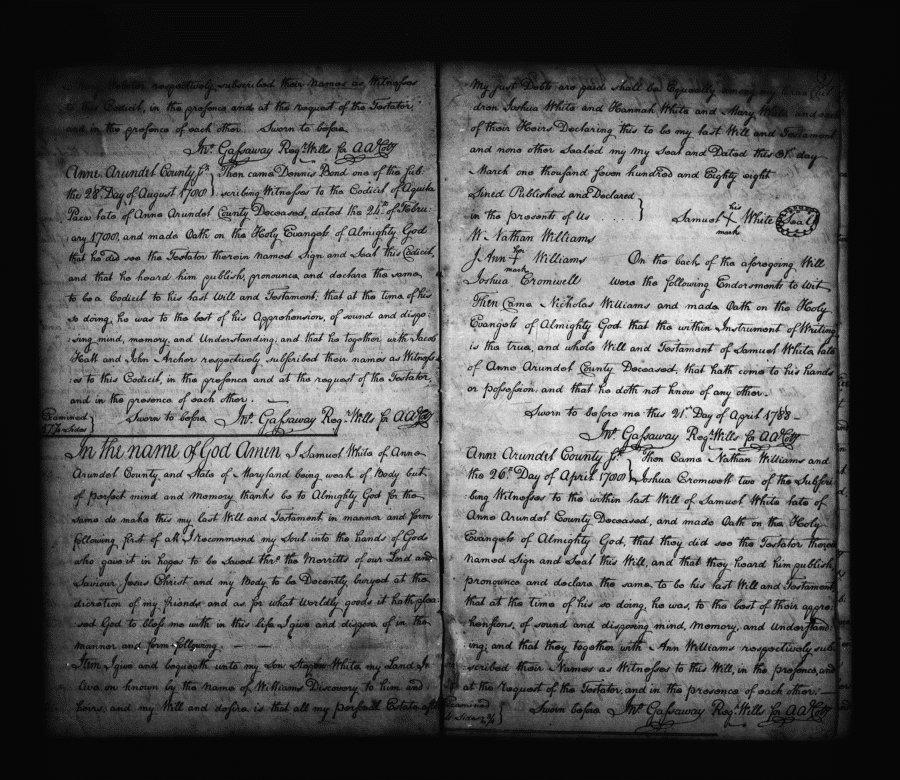 respectively subscribed their Names as Witnesses
to this Codicil, in the presence and at the request of the Testator,
and in the presence of each other Sworn to before
Jno. Gassaway Regr. Wills for AA Coty
Anne Arundel County Ss. Then came Dennis Bond one of the sub
the 28 Day of August 1788 scribing Witnesses to the Codicil of Aquila
Paca late of Anne Arundel County Deceased, dated the 24th of Febru:
ary 1788, and made Oath on the Holy Evangels of Almighty God
that he did see the Testator therein named Sign and Seal this Codicil,
and that he heard him publish, pronounce and declare the same
to be a Codicil to his last Will and Testament; that at the time of his
so doing, he was to the best of his Apprehension, of sound and dispo:
:sing mind, memory, and Understanding; and that he together with Jacob
Hall and John Archer respectively subscribed their names as Witness
:es to this Codicil, in the presence and at the request of the Testator,
and in the presence of each other.
Examined Sworn to before Jno. Gassaway Regr. Wills for AA Coty
Sides
In the name of God Amen I Samuel White of Anne
Arundel County and State of Maryland being weak of Body but
of perfect mind and Memory thanks be to Almighty God for the
same do make this my last Will and Testament in manner and form
following first of all I recommend my Soul into the hands of God
who gave it in hopes to be Saved thro the Merritts of our Lord and
Saviour Jesus Christ and my Body to be Decently buryed at the
dicretion of my friends and as for what Worldly goods it hath plea:
sed God to bless me with in this life I give and dispose of in the
manner and form following
Item I give and bequeath unto my Son Stephen White my Land I
live on known by the Name of Williams Discovery to him and
heirs, and my Will and desire is that all my personal Estate after
My just Debts are paid shall be Equally among my
dren Joshua White and Hannah White and Mary White and each
of their Heirs Declaring this to be my last Will and Testament
and none other Sealed my my Seal and Dated this 31 day
March one thousand seven hundred and Eighty eight
Sined Published and Declared
in the presents of Us .... Samuel his X mark White Seal
W. Nathan Williams
J. Ann her X mark Williams On the back of the aforegoing Will
Joshua Cromwell were the following Endorsments to Wit
Then Came Nicholas Williams and made Oath on the Holy
Evangels of Almighty God that the within Instrument of Writing
is the true and whole Will and Testament of Samuel White late
of Anne Arundel County Deceased, that hath come to his hands
or possession, and that he doth not know of any other.
Sworn to before me this 21st Day of April 1788
Jno. Gassaway Regr. Wills for AA Coty
Anne Arundel County Ss. Then Came Nathan Williams and
the 26th Day of April 1788 Joshua Cromwell two of the Subscri
bing Witnesses to the within last Will of Samuel White late of
Anne Arundel County Deceased, and made Oath on the Holy
Evangels of Almighty God, that they did see the Testator therein
named Sign and Seal this Will, and that they heard him publish,
pronounce and declare the same to be his last Will and Testament,
that at the time of his so doing he was, to the best of their appre:
hensions, of sound and disposing mind, Memory, and Understand:
:ing; and that they together with Ann Williams respectively sub:
scribed their Names as Witnesses to this Will, in the presence, and
at the request of the Testator, and in the presence of each other.
Examined Sworn before Jno. Gassaway Regr. Wills for AA Coty
Sides